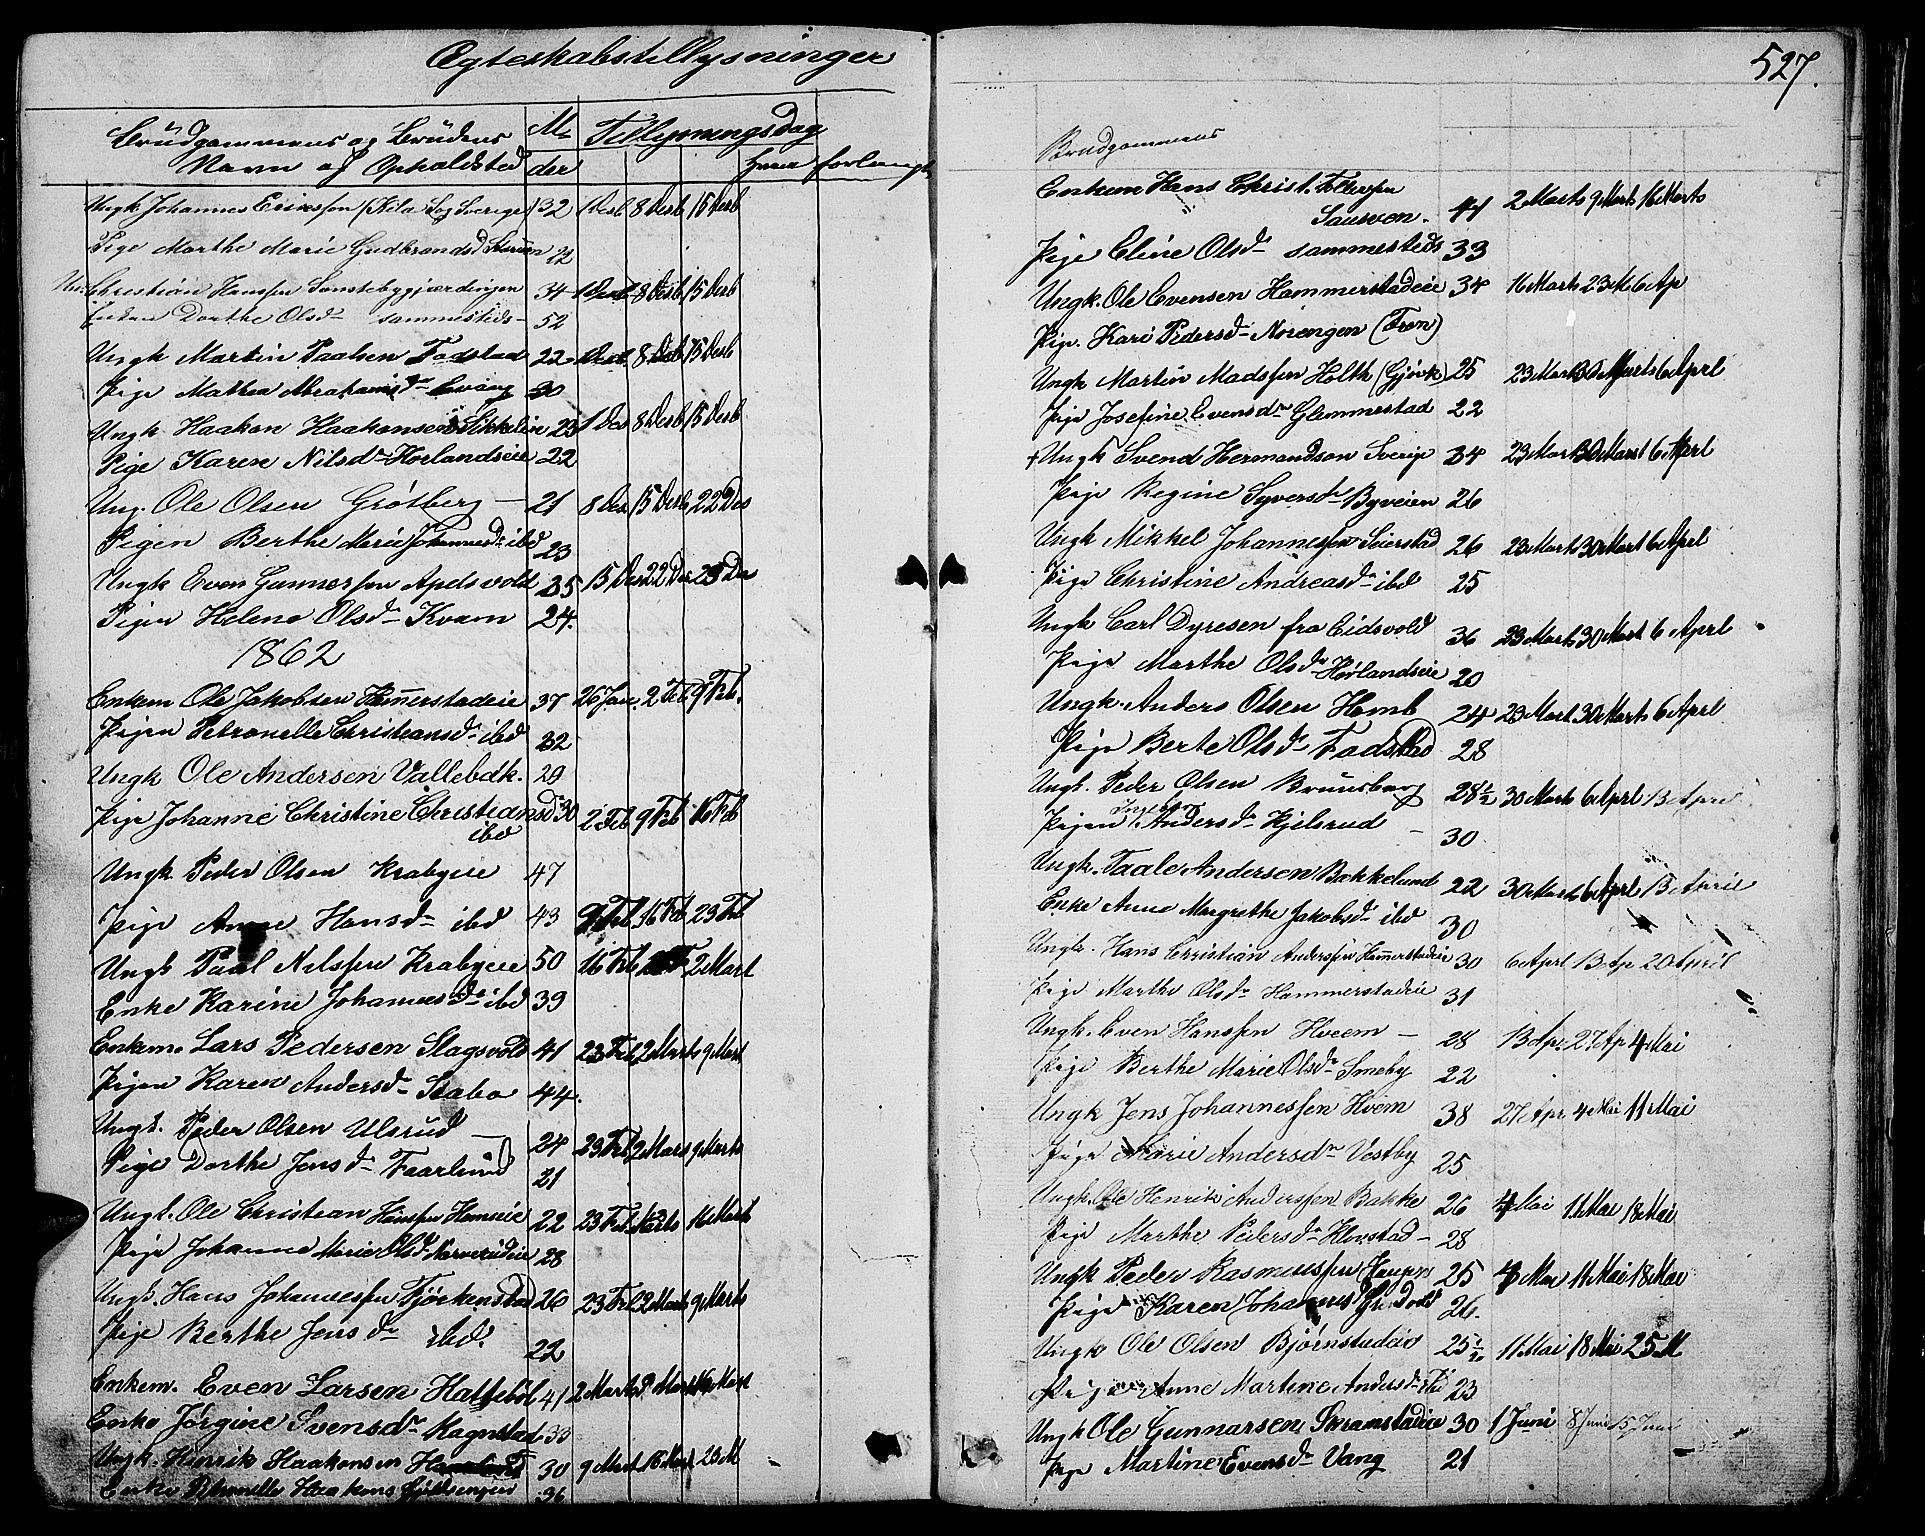 Ægteskabstillysninger
Brudgommens og Brudens
Navn og Opholdsted
Al
der
Tillysningsdag
hvem forlangt
Ungk Johannes Eriksen (Kila Sog Sverige) 32 1 Desb 8 Desb 15 Desb
Pige Marthe Marie Gudbrandsd 22
Christian Hansen Sønstebygjærdingen 34 1 Desb 8 Desb 15 Desb
Enken Dorthe Olsdr sammesteds 52
Ungk Martin Paalsen Fodstad 22 Desb 8 Desb 15 Desb
Pige Mathea Abrahamsdr 30
Ungk Haakon Haakonsen Sikkelin 23 1 Des 8 Desb 15 Desb
Pige Karen Nilsdr Horlandseie 22
Ung. Ole Olsen Grøtberg 21 8 Des 15 Desb 22 Des
Pigen Berthe Marie Johannesdr ibd 23
Ungk Even Gunnersen Apelsvold 35 15 Des 22 Des 29 Des
Pigen Helene Olsdr Kvam 24.
1862
Enkem Ole Jakobsen Hamerstadeie 37 26 Jan. 2 Feb 9 Feb.
Pigen Petronelle Christiansdr ibd 32
Ungk Ole Andersen Vallebdk. 29
Pige Johanne Christine Christiansd 30 2 Feb 9 Feb 16 Feb
ibd
Ungk Peder Olsen Krabyeie 47
Pige Anne Hansdr ibd 43 9 Feb 16 Feb 23 Feb
Ungk Paal Nilssen Krabyeie 50 16 Feb 2 Mart
Enke Karine Johannesdr ibd 39
Enkem. Lars Pedersen Slagsvold 41 23 Feb 2 Marts 9 Mart
Pigen Karen Andersdr Stabo 44.
Ungk. Peder Olsen Ulsrud 24 23 Feb 2 Mars 9 Marts
Pige Dorthe Jensdr Faarlund 21
Ungk. Ole Christian Hansen 22 23 Feb Marts 16 Mart
Pige Johanne Marie Olsd 28
Ungk. Hans Johannesen Fjørkenstad 26 23 Feb 2 Marts 9 Marts
Pige Berthe Jensdr ibd. 22
Enkem. Even Larsen Hattebøl 41 2 Marts 9 Mart 16 Mart
Enke Jørgine Svensdr Kognstad 33
Ungk. Hinrik Haakonsen 30 9 Mart 16 Mart 23 M
Enke Petronelle Haakons 36
527.
Brudgommens
Enkem Hans Christ. Tollefsen
Sausven. 44 2 Marts 9 Marts 16 Marts
Pige Eline Olsdr sammesteds 33
Ungk. Ole Evensen Hammerstadeie 34 16 Marts 23 M 6 Ap
Pige. Kari Pedersdr Norengen (Fron)
Ungk Martin Madssen Holth (Gjøvk) 25 23 Mart 30 Marts 6 Aprl
Pige Josefine Evensdr Glemmestad 22
+ Ungk Svend Hermandson Sverige 34 23 Mart 30 Marst 6 Aprl
Pige Regine Syversdr Byveien 26
Ungk Mikkel Johannesen Seierstad 26 23 Mart 30 Mart 6 Aprl
Pige Christine Andreasdr ibd 25
Ungk Carl Dyresen fra Eidsvold 36 23 Marts 30 Mart 6 Aprl
Pige Marthe Olsdr Hørlandseie 20
Ungk. Anders Olsen Homb 24 23 Mart 30 Marts 6 April
Pige Berte Olsdr Fodstad 28
Ungk. Peder Olsen Brunsberg 28½ 30 Marts 6 Aprl 13 Aprl
Pigen Ingeborg Andersdr Hjelsrud 30
Ungk. Paale Andersen Bakkelund 22 30 Marts 6 Aprl 13 April
Enke Anne Margrethe Jakobsdr ibd 30
Ungk. Hans Christian Andersen Hamerstadeie 30 6 Aprl 13 Ap 20 April
Pige Marthe Olsdr Hammerstadeie 31
Ungk. Even Hansen Hveem 28 13 Apr. 27 Ap 4 Mai
Pige Berthe Marie Olsdr Smeby 22
Ungk Jens Johannessen Hvem 38 27 Apr 4 Mai 11 Mai
Pige Marie Andersdr Vestby 25
Ungk. Ole Henrik Anderssen Bakke 26 4 Mai 11 Mai 18 Mai
Pige Marthe Pedersdr Klovstad 28
Ungk Peder Rasmussen 25 4 Mai 11 Mai 18 Mai
Pige Karen Johannesd 26.
Ungk Ole Olsen Bjørnstadeie 25½ 11 Mai 18 Mai 25 M
Pige Anne Martine Andersdr ibd 23
Ungk Ole Gunnarsen Skramstadeie 30 1 Juni 8 Juni 15 Juni
Pige Martine Evensdr Vang 21